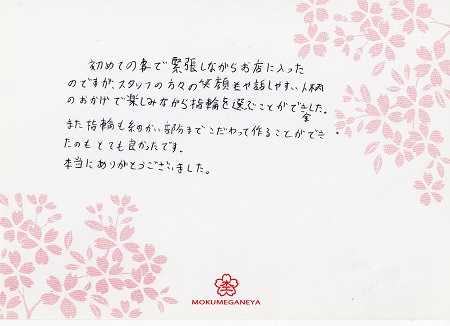 初めての事で緊張しながらお店に入った
のですが、スタッフの方々の笑顔や話しやすい人柄
のおかげで楽しみながら指輪を選ぶことができました。
また指輪も細かい部分までこだわって作ることができ
たのもとても良かったです。
本当にありがとうございました。
杢
MOKUMEGANEYA